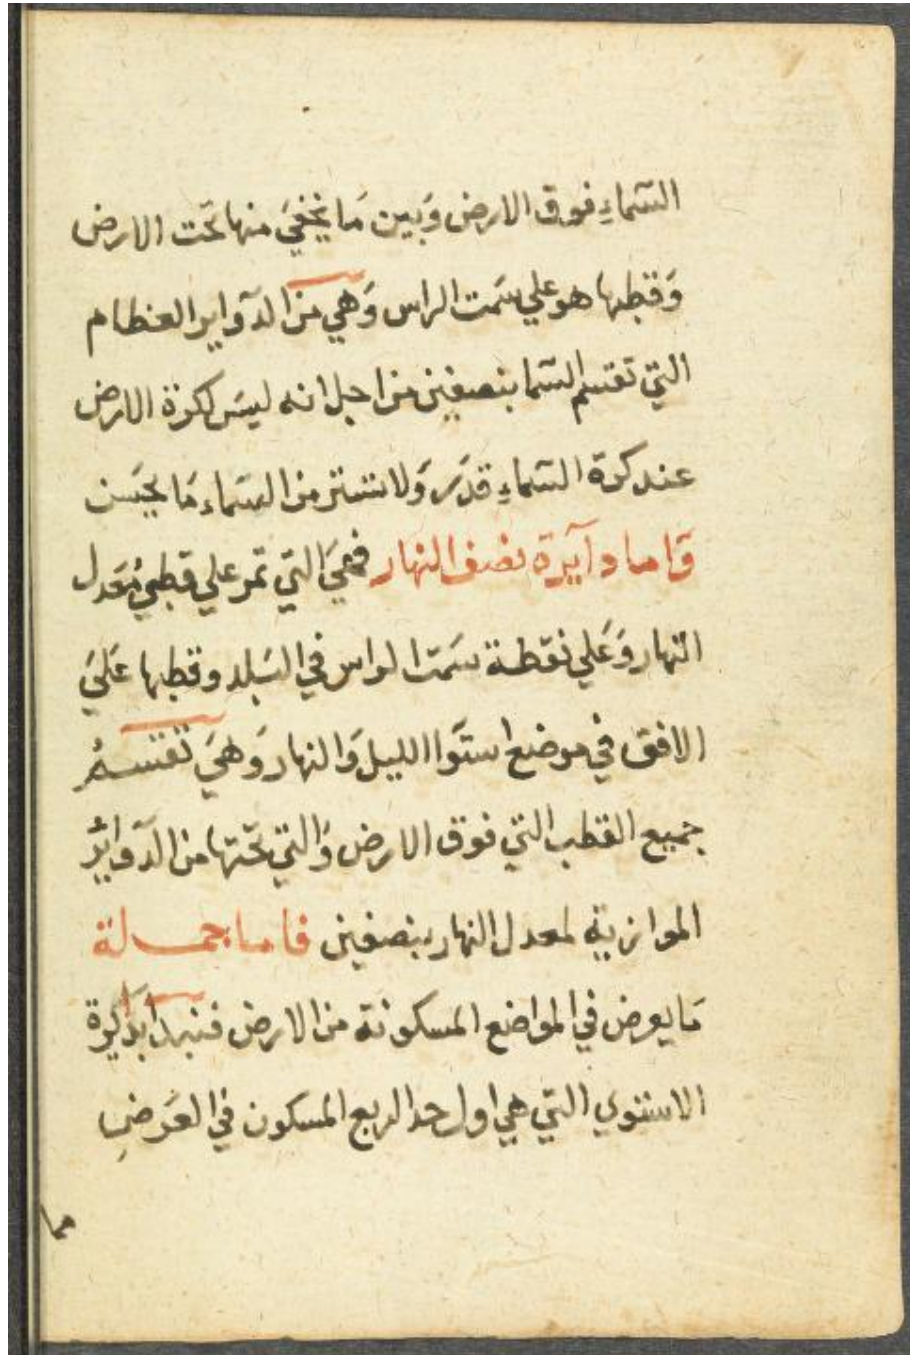 السّماءِ فوق الارض وَبين مَا يخفيَ منها تحَت الارض
وَقطبها هو علي سَمت الراس وَهي من الدآواير العظام
التيَ تقسم السّما بنصفين من اجل انه ليسَ لكرة الارض
عند كرة السّماءِ قدَر وَلا تستتر من السّماء مَا يحسَن
وَاما دآيرة نصف النهار فهيَ التيَ تمر علي قطبي مُعَدل
النهار وَعَلي نقطة سَمت الراس في البَلد وقطبها عَليَ
الافق في موضع استوَا الليل وَالنهار وَهيَ تقتسمُ
جميع القطب التي فوق الارض وَالتي تحَتها من الدَآوايرُ
الموازية لمعدل النهار بنصفين فاما جمــلة
مَا يعرض في المواضع المسكونة من الارض فنبدا بدَآيرة
الاستوي التي هي اول حد الربع المسكون في العَرضِ
مما